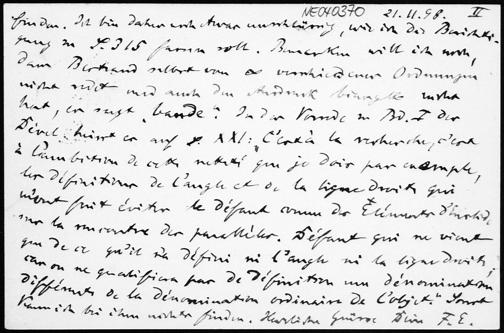 NE040370 21.11.98. II
finden. Ich bin daher noch etwas unschlüssig, wie ich das
zu S. 315 fassen soll. Bemerken will ich noch,
dass Bertrand selbst von ∞ verschiedener Ordnungen
nicht redet und auch den Ausdruck nicht
hat, er sagt „bande“. In der Vorrede zu Bd. I der
Dével. heisst es auf p. XXI: „C'est à la recherche, c'est
à l'ambition de cette netteté que je dois par exemple,
les définitions de l'angle et de la ligne droite qui
m'ont fait éviter le défaut connu des Éléments d'Euclide
sur la rencontre des parallèles. Défaut qui ne vient
que de ce qu'il n'a défini ni l'angle ni la ligne droite,
car on ne qualifiera pas de Définition une dénomination
différente de la dénomination ordinaire de l'objet“. Sonst
kann ich bei ihm nichts finden. Herzliche Grüsse Dein F. E.